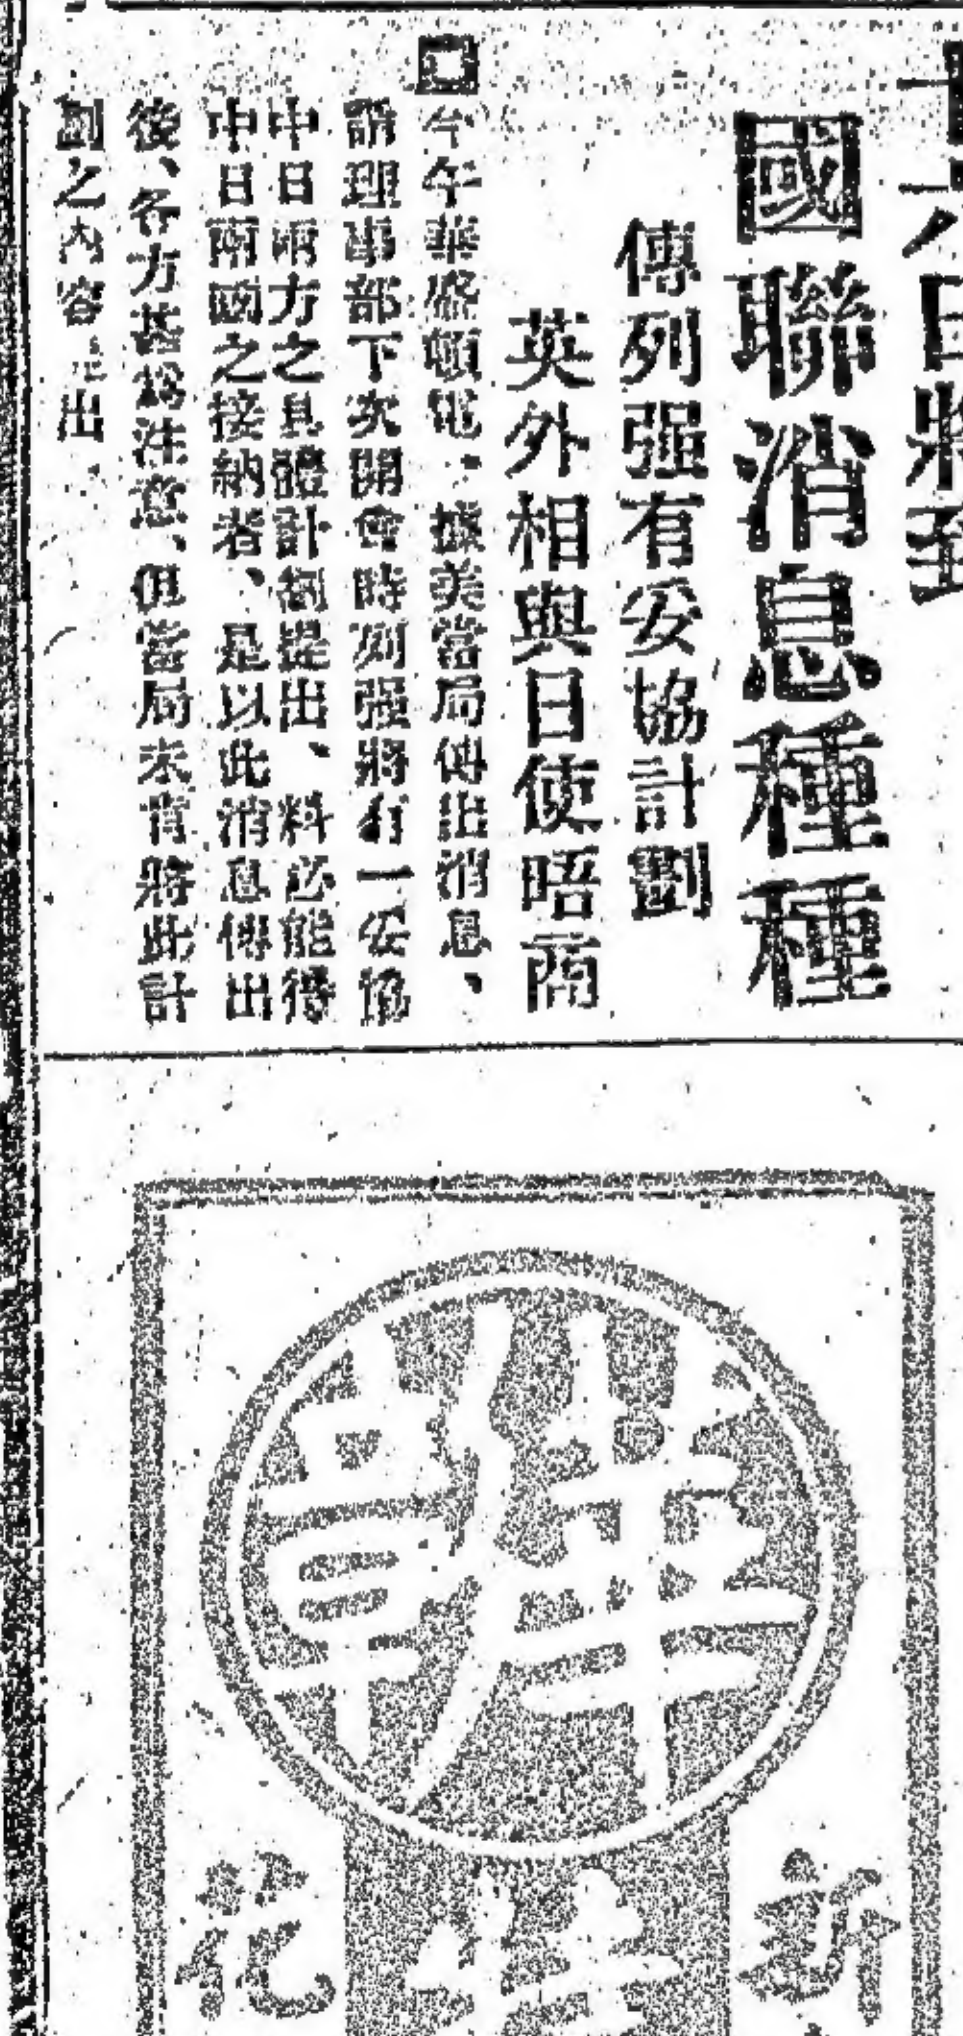 十六日將到
國聯消息種種
傳列强有妥協計劃
英外相與日使晤商
今午華盛頓電、據美當局傳出消息、
謂理事部下次開會時列强將有一妥協
中日兩方之具體計劃提出、料必能得
中日兩國之接納者、是以此消息傳出
後、各方甚爲注意、但當局未肯將此計
劃之內容 出、
新
花